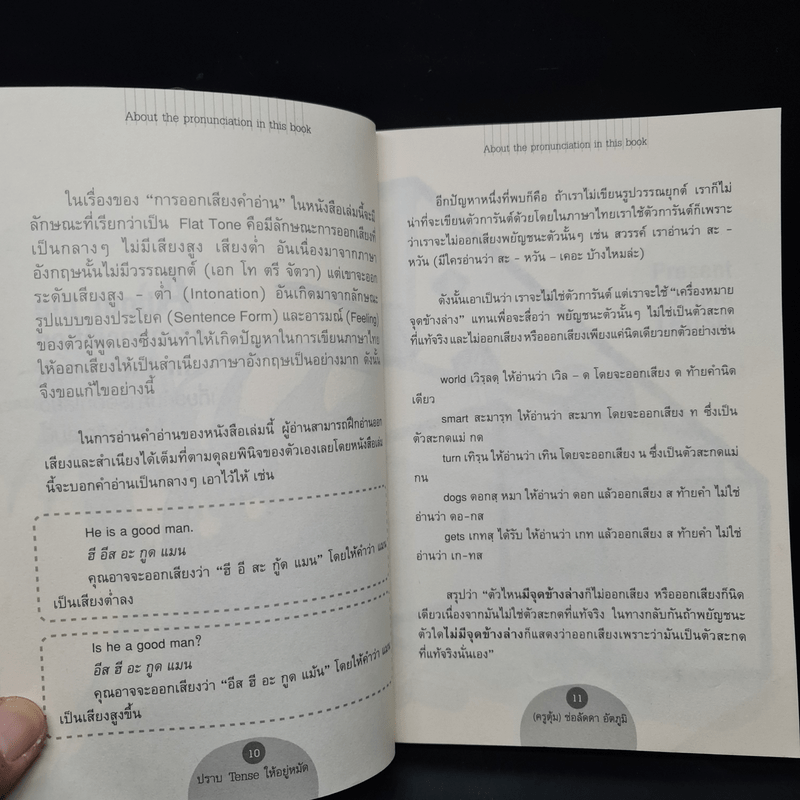 About the pronunciation in this book
ในเรื่องของ “การออกเสียงคำอ่าน” ในหนังสือเล่มนี้จะมี
ลักษณะที่เรียกว่าเป็น Flat Tone คือมีลักษณะการออกเสียงที่
เป็นกลางๆ ไม่มีเสียงสูง เสียงต่ำ อันเนื่องมาจากภาษา
อังกฤษนั้นไม่มีวรรณยุกต์ (เอก โท ตรี จัตวา) แต่เขาจะออก
ระดับเสียงสูง - ต่ำ (Intonation) อันเกิดมาจากลักษณะ
รูปแบบของประโยค (Sentence Form) และอารมณ์ (Feeling)
ของตัวผู้พูดเองซึ่งมันทำให้เกิดปัญหาในการเขียนภาษาไทย
ให้ออกเสียงให้เป็นสำเนียงภาษาอังกฤษเป็นอย่างมาก ดังนั้น
จึงขอแก้ไขอย่างนี้
ในการอ่านคำอ่านของหนังสือเล่มนี้ ผู้อ่านสามารถฝึกอ่านออก
เสียงและสำเนียงได้เต็มที่ตามดุลยพินิจของตัวเองเลยโดยหนังสือเล่ม
นี้จะบอกคำอ่านเป็นกลางๆ เอาไว้ให้ เช่น
He is a good man.
ฮี อีส อะ กูด แมน
คุณอาจจะออกเสียงว่า “ฮี อี สะ กู้ด แมน” โดยให้คำว่า แมน
เป็นเสียงต่ำลง
Is he a good man?
อีส ฮี อะ กูด แมน
คุณอาจจะออกเสียงว่า “อีส ฮี อะ กูด แม้น” โดยให้คำว่า แมน
เป็นเสียงสูงขึ้น
10
ปราบ Tense ให้อยู่หมัด
About the pronunciation in this book
อีกปัญหาหนึ่งที่พบก็คือ ถ้าเราไม่เขียนรูปวรรณยุกต์ เราก็ไม่
น่าที่จะเขียนตัวการันต์ด้วยโดยในภาษาไทยเราใช้ตัวการันต์ก็เพราะ
ว่าเราจะไม่ออกเสียงพยัญชนะตัวนั้นๆ เช่น สวรรค์ เราอ่านว่า สะ -
หวัน (มีใครอ่านว่า สะ - หวัน - เคอะ บ้างไหมล่ะ)
ดังนั้นเอาเป็นว่า เราจะไม่ใช่ตัวการันต์ แต่เราจะใช้ “เครื่องหมาย
จุดข้างล่าง” แทนเพื่อจะสื่อว่า พยัญชนะตัวนั้นๆ ไม่ใช่เป็นตัวสะกด
ที่แท้จริง และไม่ออกเสียง หรือออกเสียงเพียงแค่นิดเดียวยกตัวอย่างเช่น
world เวิรฺลดฺ ให้อ่านว่า เวิล - ด โดยจะออกเสียง ด ท้ายคำนิด
เดียว
smart สะมารฺท ให้อ่านว่า สะมาท โดยจะออกเสียง ท ซึ่งเป็น
ตัวสะกดแม่ กด
turn เทิรฺน ให้อ่านว่า เทิน โดยจะออกเสียง น ซึ่งเป็นตัวสะกดแม่
กน
dogs ดอกสฺ หมา ให้อ่านว่า ดอก แล้วออกเสียง ส ท้ายคำ ไม่ใช่
อ่านว่า ดอ-กส
gets เกทสฺ ได้รับ ให้อ่านว่า เกท แล้วออกเสียง ส ท้ายคำ ไม่ใช่
อ่านว่า เก-ทส
สรุปว่า “ตัวไหนมีจุดข้างล่างก็ไม่ออกเสียง หรือออกเสียงก็นิด
เดียวเนื่องจากมันไม่ใช่ตัวสะกดที่แท้จริง ในทางกลับกันถ้าพยัญชนะ
ตัวใดไม่มีจุดข้างล่างก็แสดงว่าออกเสียงเพราะว่ามันเป็นตัวสะกด
ที่แท้จริงนั่นเอง”
11
(ครูตุ้ม) ช่อลัดดา อัตภูมิ